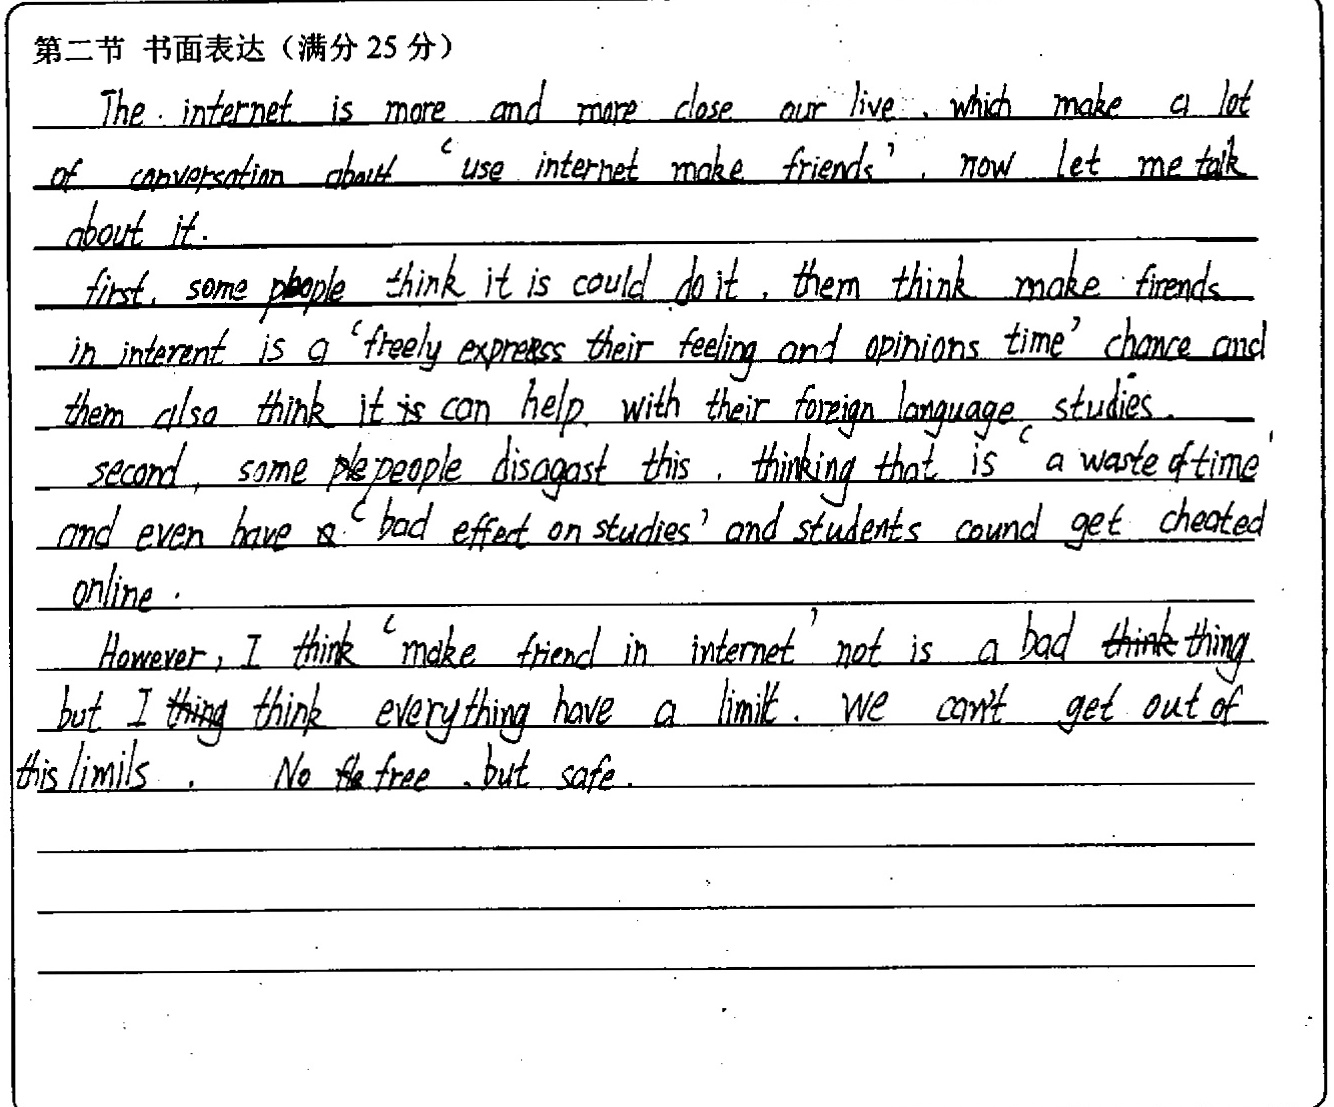 第二节 书面表达（满分 25 分）
The internet is more and more close our live, which make a lot
of conversation about 'use internet make friends', now let me talk
about it.
first, some people think it is could do it, them think make firends
in interent is a 'freely express their feeling and opinions time' chance and
them also think it is can help with their foreign language studies.
second, some people disagast this, thinking that is 'a waste of time'
and even have 'bad effect on studies' and students cound get cheated
online.
However, I think 'make friend in internet' not is a bad think thing
but I thing think everything have a limit. We can't get out of
this limils. No free, but safe.